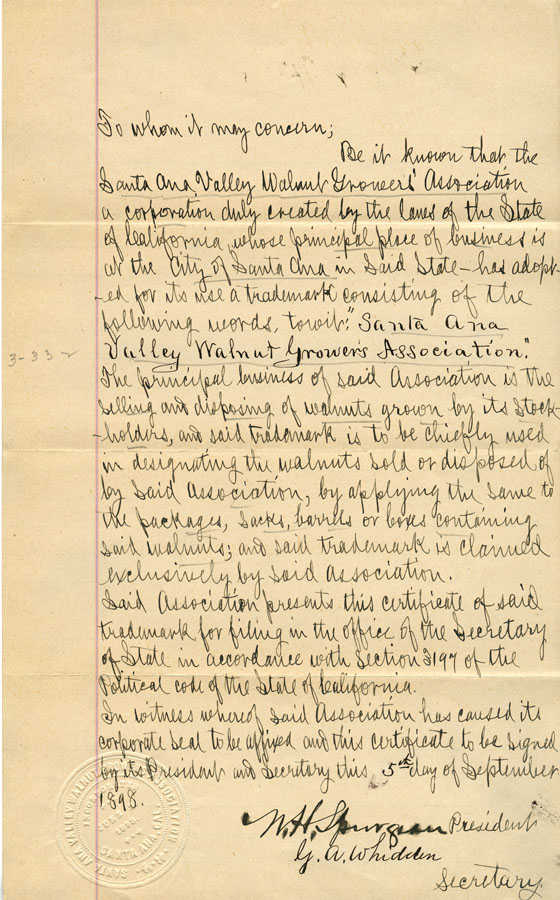 To whom it may concern;
Be it known that the
Santa Ana Valley Walnut Growers' Association
a corporation duly created by the laws of the State
of California, whose principal place of business is
at the City of Santa Ana in Said State - has adopt-
-ed for its use a trademark consisting of the
following words, towit: "Santa Ana
Valley Walnut Growers Association."
3-332
The principal business of said Association is the
selling and disposing of walnuts grown by its Stock-
-holders, and said trademark is to be chiefly used
in designating the walnuts sold or disposed of
by said Association, by applying the same to
the packages, sacks, barrels or boxes containing
said walnuts; and said trademark is claimed
exclusively by said Association.
Said Association presents this certificate of said
trademark for filing in the office of the Secretary
of State in accordance with Section 3197 of the
Political code of the State of California.
In witness whereof said Association has caused its
corporate seal to be affixed and this certificate to be signed
by its President and Secretary this 5th day of September
1898.
W. H. Spurgeon President
G. A. Whidden
Secretary.
SANTA ANA VALLEY WALNUT ASSOCIATION
SANTA ANA